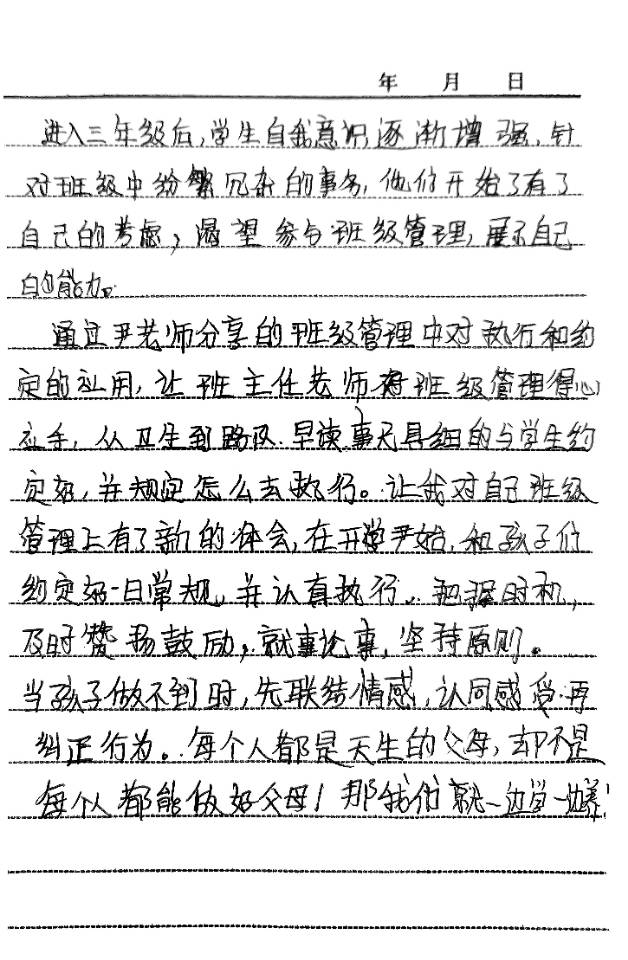 年 月 日
进入三年级后,学生自我意识逐渐增强,针
对班级中纷繁冗杂的事务,他们开始了有了
自己的考虑,渴望参与班级管理,展示自己
的能力。
通过尹老师分享的班级管理中对执行和约
定的运用,让班主任老师对班级管理得心
应手,从卫生到路队.早读事无具细的与学生约
定好,并规定怎么去执行。让我对自己班级
管理上有了新的体会,在开学开始,和孩子们
约定好日常规,并认真执行。把握时机,
及时赞扬鼓励,就事论事,坚持原则。
当孩子做不到时,先联结情感,认同感受.再
纠正行为。每个人都是天生的父母,却不是
每个人都能做好父母!那我们就一边学一边养!